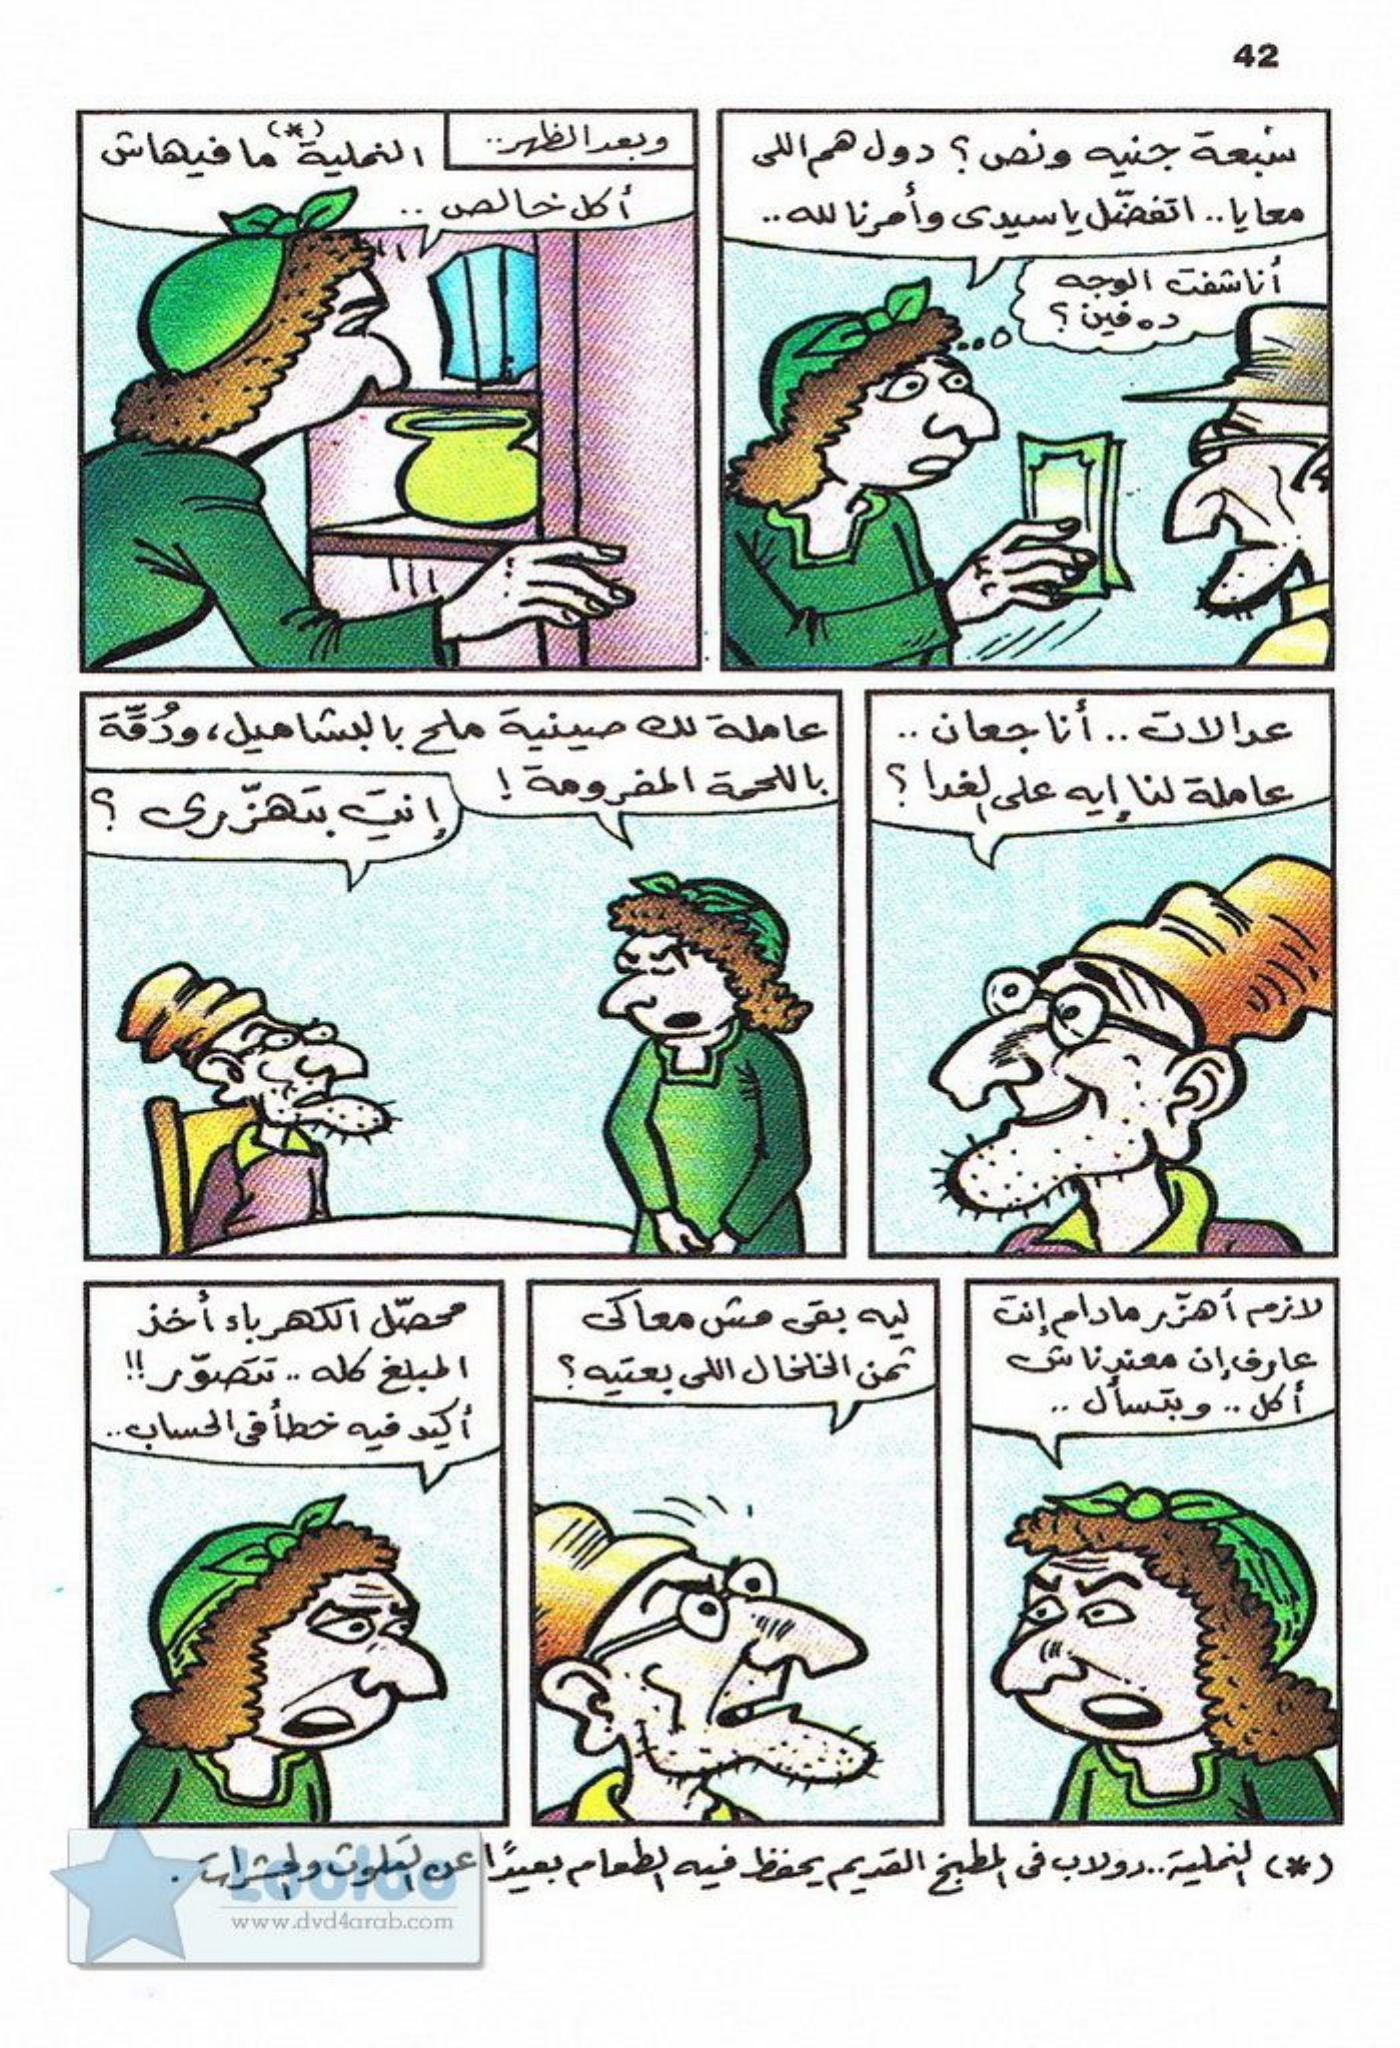 42
سبعة جنيه ونص؟ دول هم اللى
معايا.. اتفضّل يا سيدى وأمرنا لله..
أنا شفت الوجه
ده فين؟
وبعد الظهر..
النملية(*) ما فيهاش
أكل خالص..
عدالات.. أنا جعان..
عاملة لنا إيه على الغدا؟
عاملة لك صينية ملح بالبشاميل، ودُقّة
باللحمة المفرومة!
إنتِ بتهزّرى؟
لازم أهزّر مادام إنت
عارف إن معندناش
أكل.. وبتسأل..
ليه بقى مش معاكى
ثمن الخلخال اللى بعتيه؟
محصّل الكهرباء أخذ
المبلغ كله.. تتصوّر!!
أكيد فيه خطأ فى الحساب..
(*) النملية.. دولاب فى المطبخ القديم يحفظ فيه الطعام بعيدًا عن التلوث والحشرات.
Looloo
www.dvd4arab.com